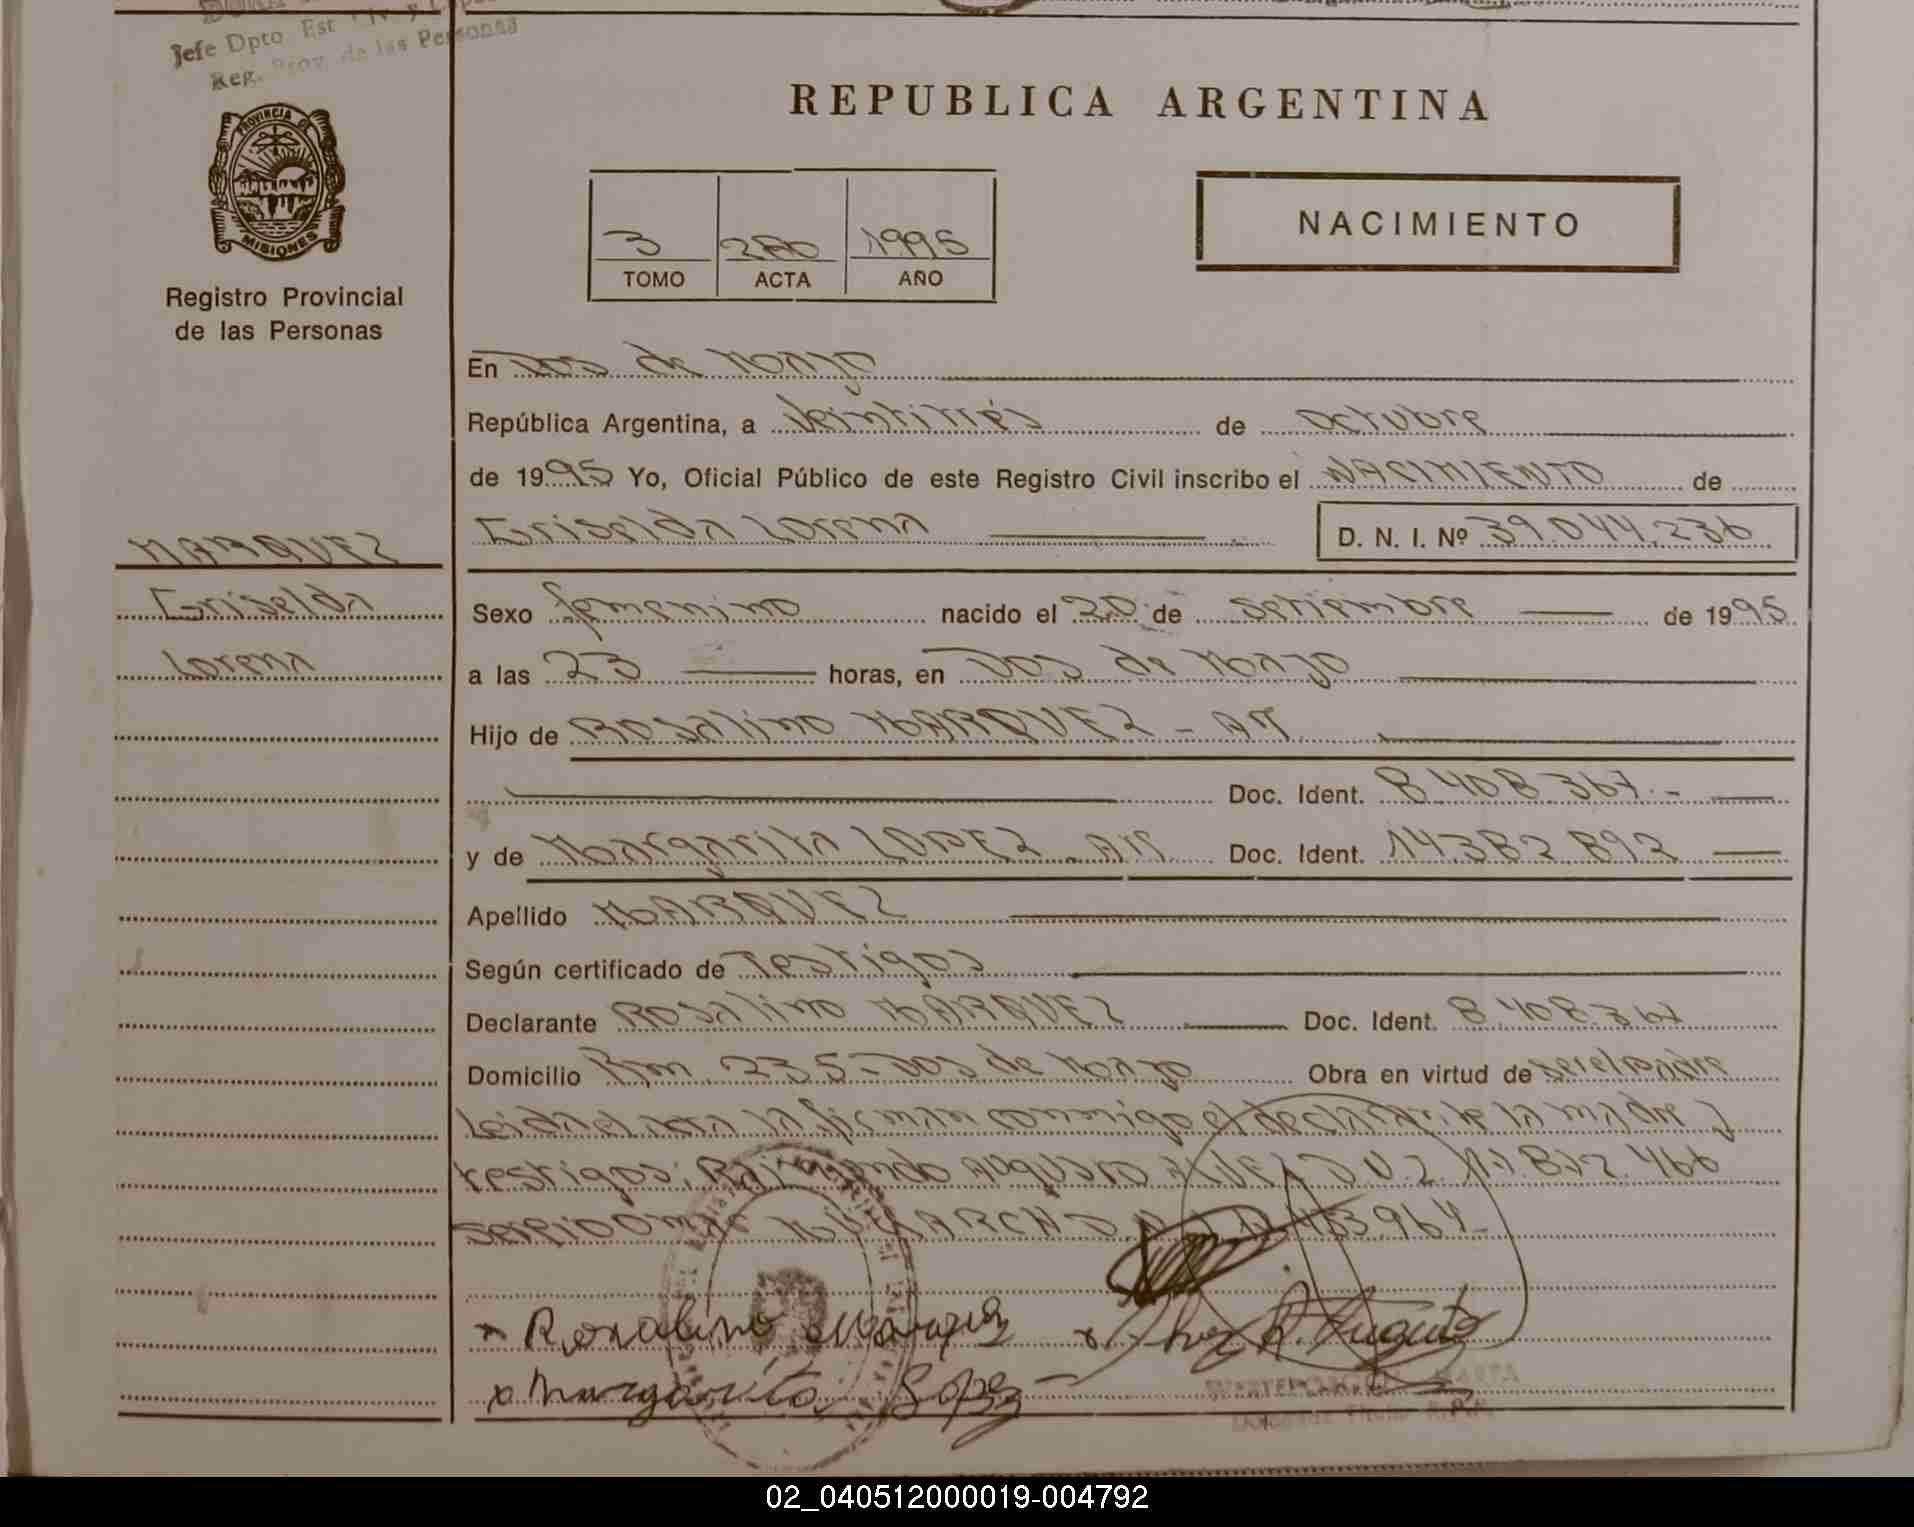 Jefe Dpto Est Civ. y Cap
Reg. Prov. de las Personas
PROVINCIA DE
MISIONES
Registro Provincial
de las Personas
REPUBLICA ARGENTINA
3 280 1995
TOMO ACTA AÑO
NACIMIENTO
En Dos de Mayo
República Argentina, a Veintitrés de octubre
de 1995 Yo, Oficial Público de este Registro Civil inscribo el NACIMIENTO de
Griselda Lorena D. N. I. Nº 39.044.236
MARQUEZ
Griselda
Lorena
Sexo femenino nacido el 20 de setiembre de 1995
a las 23 horas, en Dos de Mayo
Hijo de Rosalino MARQUEZ - AM
Doc. Ident. 8.408.367.-
y de Margarita LOPEZ - AM Doc. Ident. 14.382.892
Apellido MARQUEZ
Según certificado de Testigos
Declarante Rosalino MARQUEZ Doc. Ident. 8.408.367
Domicilio Km. 235 - Dos de Mayo Obra en virtud de ser el padre
Leida el acta la firman conmigo el declarante la madre y
testigos: Raimundo Augusto ALVEZ D.N.I. 466
964-
Rosalino Marquez
Margarita Lopez
02_040512000019-004792